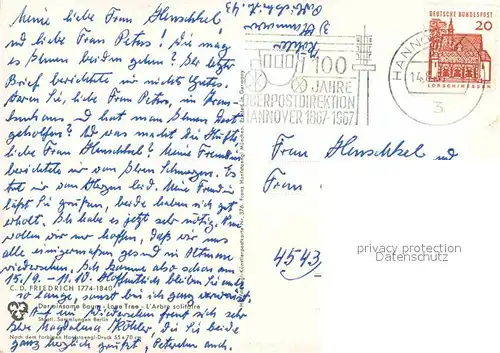 Meine liebe Frau Henschkel
und liebe Frau Peters! Wie mag
es Ihnen beiden gehen? Ihr letzter
Brief berichtete mir nichts Gutes.
Waren Sie, liebe Frau Peters, im Kran-
kenhaus und hat man Ihnen dort
geholfen? Und was macht die Hüfte,
liebe Frau Henschkel? Meine Freundin
berichtete mir von Ihren Schmerzen. Es
tut mir von Herzen leid. Meine Freundin
läßt Sie grüßen, beide haben sich gut
erholt. Ich habe es jetzt sehr nötig. Nun
wollen wir nur hoffen, daß wir uns
alle einigermaßen gesund in
wiedersehen. Ich komme also schon am
15./9. - 11.10. Hoffentlich bleiben Sie auch
so lange, sonst bin ich ganz verwaist.
Auf ein Wiedersehen freut sich sehr
Ihre Magdalena Köhler, die Sie beide
ganz herzlich grüßt,
C. D. FRIEDRICH 1774-1840
Der einsame Baum - Lone Tree - L'Arbre solitaire
Staatl. Sammlungen Berlin
Nach dem farbigen Hanfstaengl-Druck 55 x 70 cm
Hanfstaengl-Künstlerpostkarte Nr. 376. Franz Hanfstaengl, München. Printed in Germany
Köhler
3 Hannover
100
JAHRE
OBERPOSTDIREKTION
HANNOVER 1867-1967
HANNOVER
14.
3
DEUTSCHE BUNDESPOST
20
LORSCH/HESSEN
Frau Henschkel und
Frau
4543
privacy protection
Datenschutz